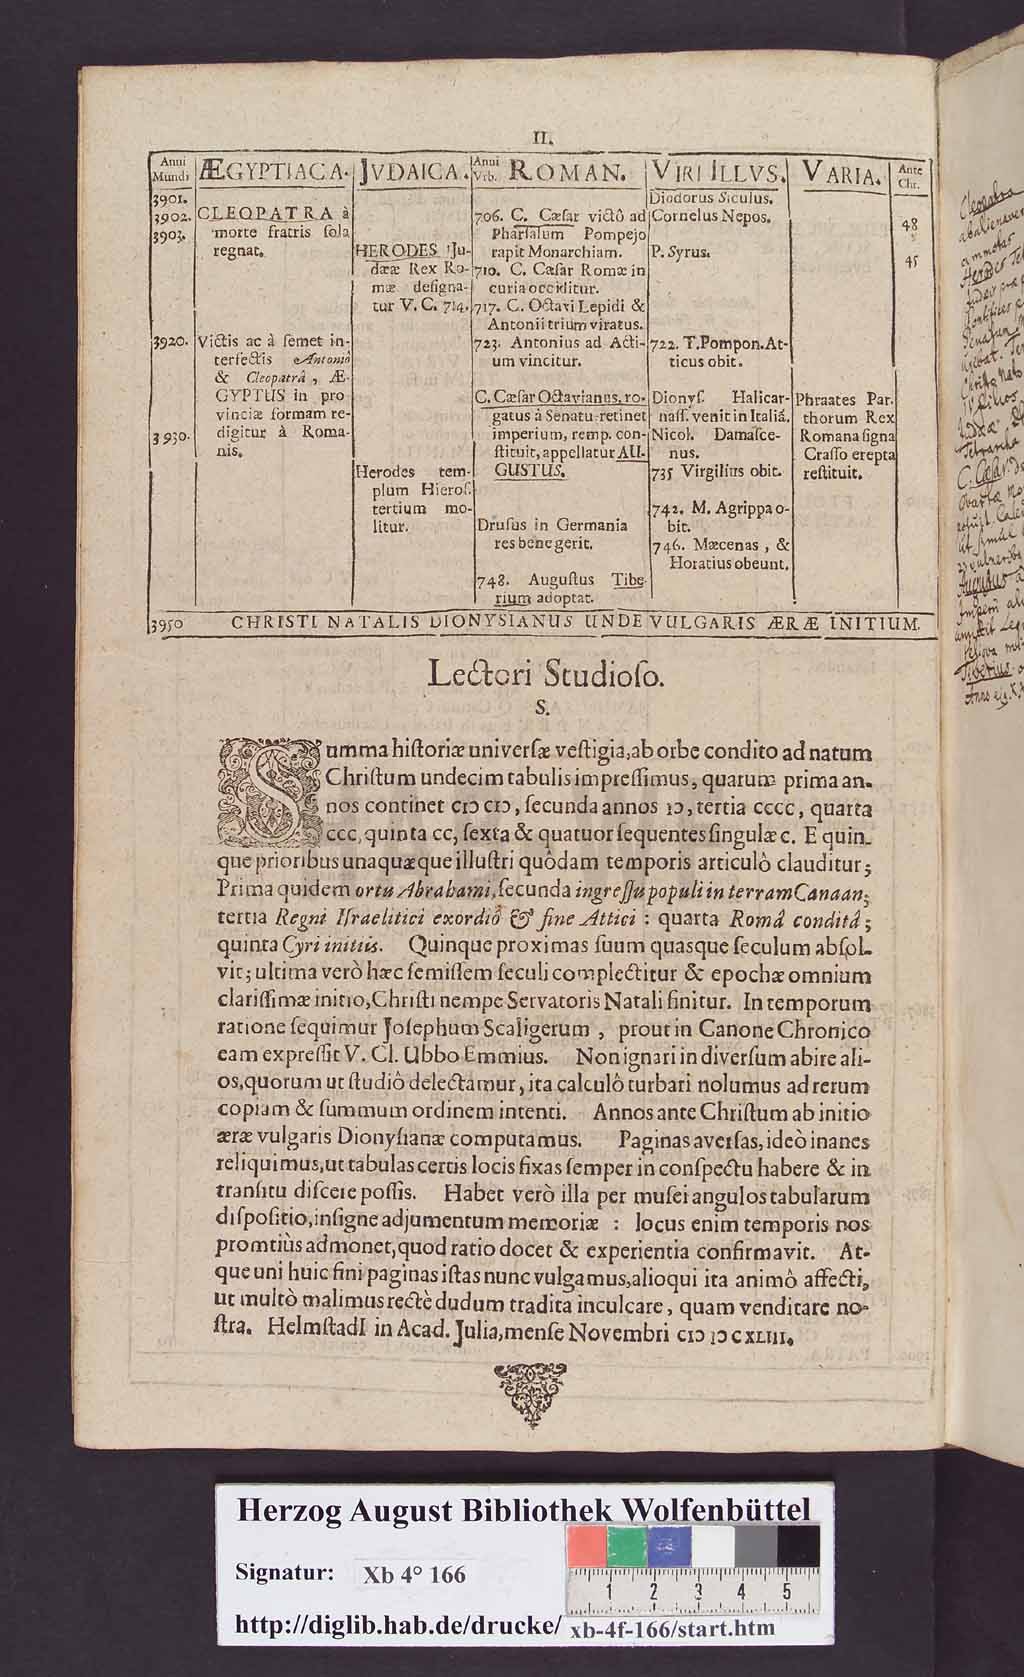 II.
Anni Mundi
ÆGYPTIACA.
JVDAICA.
Anni Vrb.
ROMAN.
VIRI ILLVS.
VARIA.
Ante Chr.
3901.
3902.
3903.
CLEOPATRA à
morte fratris ſola
regnat.
3920.
Victis ac à ſemet in-
terfectis Antoniô
& Cleopatrâ, Æ-
GYPTUS in pro
vinciæ formam re-
3930.
digitur à Roma-
nis.
HERODES Ju-
dææ Rex Ro-
mæ deſigna-
tur V. C. 714.
Herodes tem-
plum Hieroſ.
tertium mo-
litur.
706. C. Cæſar victô ad
Pharſalum Pompejo
rapit Monarchiam.
710. C. Cæſar Romæ in
curia occiditur.
717. C. Octavi Lepidi &
Antonii triumviratus.
723. Antonius ad Acti-
um vincitur.
C. Cæſar Octavianus, ro-
gatus à Senatu retinet
imperium, remp. con-
ſtituit, appellatur AU-
GUSTUS.
Druſus in Germania
res bene gerit.
748. Auguſtus Tibe-
rium adoptat.
Diodorus Siculus.
Cornelus Nepos.
P. Syrus.
722. T. Pompon. At-
ticus obit.
Dionyſ. Halicar-
naſſ. venit in Italiã.
Nicol. Damaſce-
nus.
735 Virgilius obit.
742. M. Agrippa o-
bit.
746. Mæcenas, &
Horatius obeunt.
Phraates Par.
thorum Rex
Romana ſigna
Craſſo erepta
reſtituit.
48
45
3950 CHRISTI NATALIS DIONYSIANUS UNDE VULGARIS ÆRÆ INITIUM.
Lectori Studioſo.
S.
Summa hiſtoriæ univerſæ veſtigia, ab orbe condito ad natum
Chriſtum undecim tabulis impreſſimus, quarum prima an-
nos continet cIↄ cIↄ, ſecunda annos Iↄ, tertia cccc, quarta
ccc, quinta cc, ſexta & quatuor ſequentes ſingulæ c. E quin-
que prioribus unaquæque illuſtri quôdam temporis articulô clauditur;
Prima quidem ortu Abrahami, ſecunda ingreſſu populi in terram Canaan;
tertia Regni Iſraelitici exordiô & fine Attici : quarta Româ conditâ;
quinta Cyri initiis. Quinque proximas ſuum quasque ſeculum abſol-
vit; ultima verò hæc ſemiſſem ſeculi complectitur & epochæ omnium
clariſſimæ initio, Chriſti nempe Servatoris Natali finitur. In temporum
ratione ſequimur Joſephum Scaligerum, prout in Canone Chronico
eam expreſſit V. Cl. Ubbo Emmius. Non ignari in diverſum abire ali-
os, quorum ut ſtudiô delectamur, ita calculô turbari nolumus ad rerum
copiam & ſummum ordinem intenti. Annos ante Chriſtum ab initio
æræ vulgaris Dionyſianæ computamus. Paginas averſas, ideò inanes
reliquimus, ut tabulas certis locis fixas ſemper in conſpectu habere & in
tranſitu diſcere poſſis. Habet verò illa per muſei angulos tabularum
diſpoſitio, inſigne adjumentum memoriæ : locus enim temporis nos
promtiùs admonet, quod ratio docet & experientia confirmavit. At-
que uni huic fini paginas iſtas nunc vulgamus, alioqui ita animô affecti,
ut multò malimus rectè dudum tradita inculcare, quam venditare no-
ſtra. HelmſtadI in Acad. Julia, menſe Novembri cIↄ Iↄ CXLIII.
Cleopatra
Herodes
C. Cæsar
Augustus
Tiberius
Herzog August Bibliothek Wolfenbüttel
Signatur: Xb 4° 166
1 2 3 4 5
http://diglib.hab.de/drucke/ xb-4f-166/start.htm